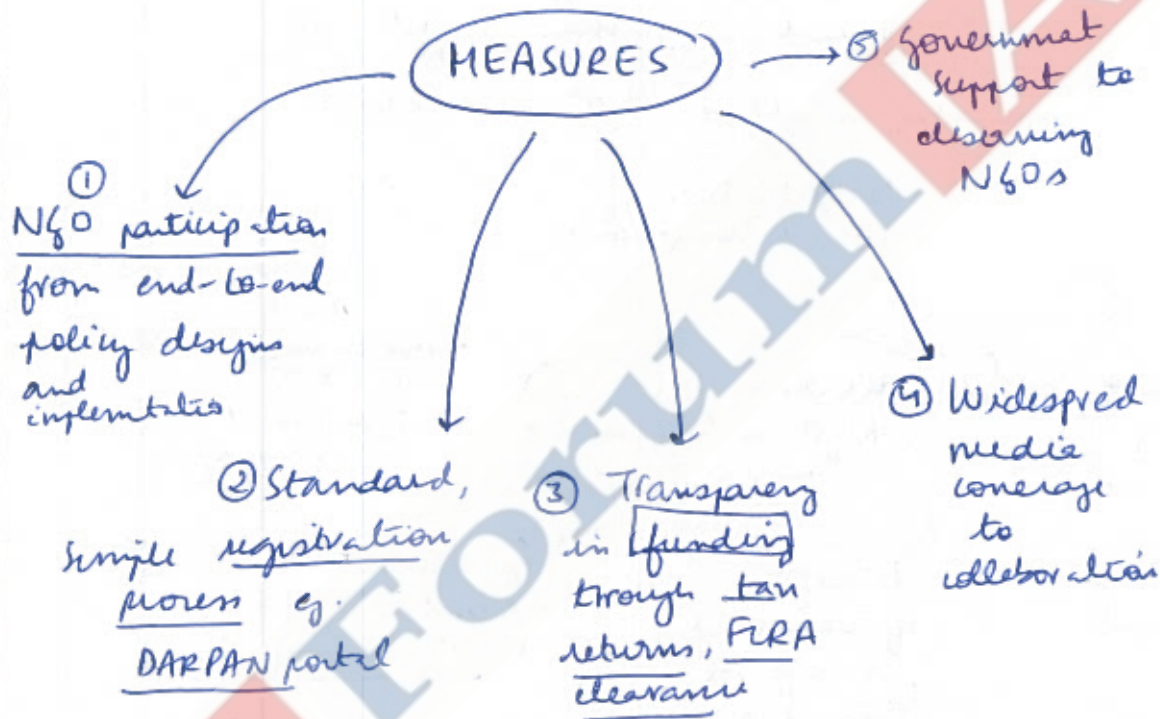 MEASURES
①
NGO participation
from end-to-end
policy designs
and
implemtatio
② Standard,
simple registration
process eg.
DARPAN portal
③ Transparency
in funding
through tax
returns, FCRA
clearance
④ Widespred
media
coverage
to
collaboration
⑤ Governmet
support to
deserving
NGOs
Forum